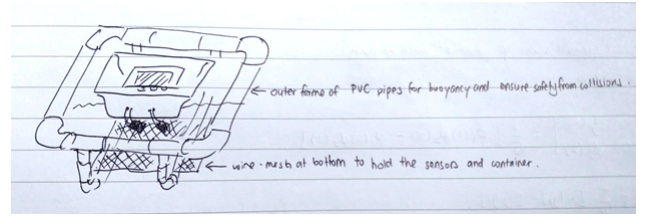 outer frame of PVC pipes for buoyancy and ensure safety from collisions.
wire-mesh at bottom to hold the sensors and container.